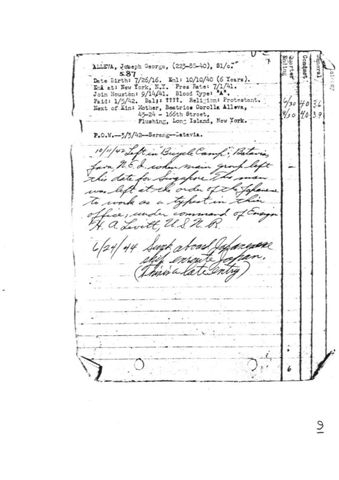 ALLEVA, Joseph George, (223-85-40), S1/c.
S.87
Date Birth: 7/26/16. Enl: 10/10/40 (6 Years).
Enl at: New York, N.Y. Pres Rate: 7/1/41.
Join Houston: 9/14/41. Blood Type: "A".
Paid: 1/5/42. Bal: ????. Religion: Protestant.
Next of Kin: Mother, Beatrice Corolla Alleva,
43-24 - 166th Street,
Flushing, Long Island, New York.
P.O.W.--3/3/42--Serang--Batavia.
10/11/42 Left in Bicycle Camp, Batavia,
Java N.E.I. when main group left
this date for Singapore. The man
was left at the order of the Japanese
to work as a typist in their
office, under command of Ensign
H. A. Levitt, U S N R.
6/24/44 Sunk aboard Japanese
ship enroute Japan.
(This is late entry)
Quarter Ending
Conduct
4/30 40 36
40 39
6
9